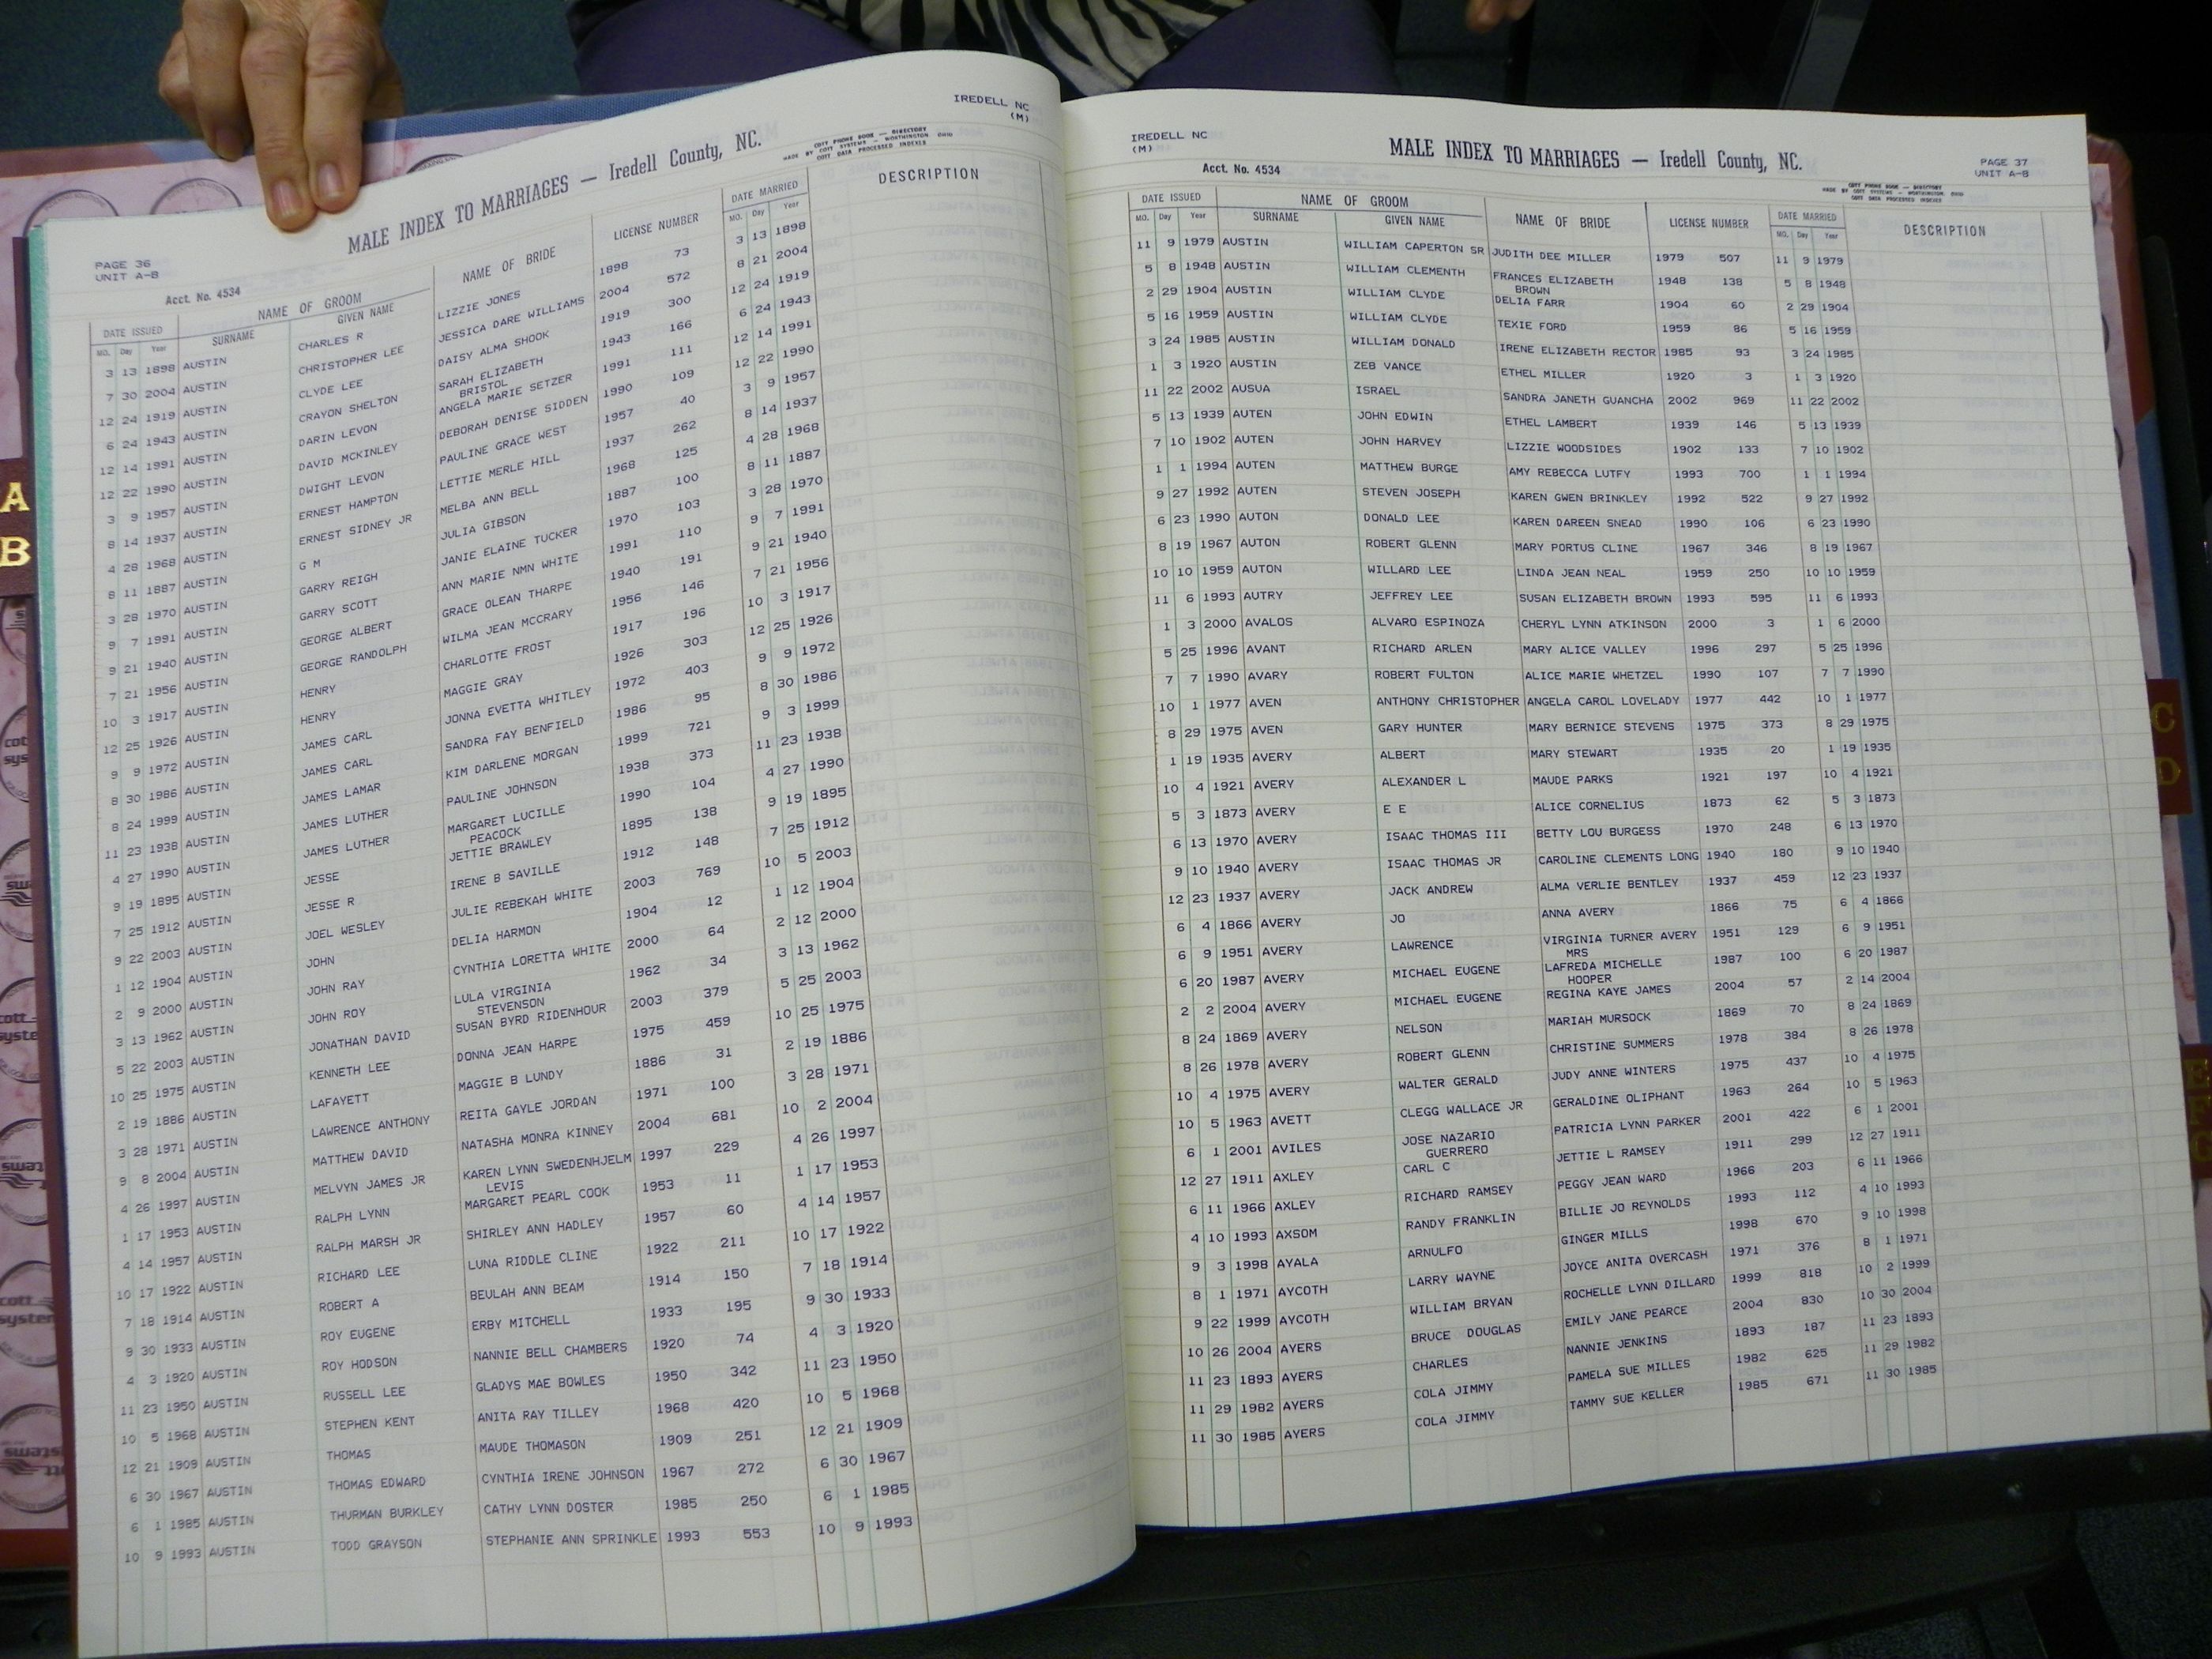 IREDELL NC
(M)
MALE INDEX TO MARRIAGES — Iredell County, NC.
COTT PHONE BOOK — DIRECTORY
MADE BY COTT SYSTEMS — WORTHINGTON OHIO
COTT DATA PROCESSED INDEXES
PAGE 36
UNIT A-B
Acct. No. 4534
DATE ISSUED NAME OF GROOM NAME OF BRIDE LICENSE NUMBER DATE MARRIED DESCRIPTION
MO. Day Year SURNAME GIVEN NAME MO. Day Year
3 13 1898 AUSTIN CHARLES R LIZZIE JONES 1898 73 3 13 1898
7 30 2004 AUSTIN CHRISTOPHER LEE JESSICA DARE WILLIAMS 2004 572 8 21 2004
12 24 1919 AUSTIN CLYDE LEE DAISY ALMA SHOOK 1919 300 12 24 1919
6 24 1943 AUSTIN CRAYON SHELTON SARAH ELIZABETH 1943 166 6 24 1943
BRISTOL
12 14 1991 AUSTIN DARIN LEVON ANGELA MARIE SETZER 1991 111 12 14 1991
12 22 1990 AUSTIN DAVID MCKINLEY DEBORAH DENISE SIDDEN 1990 109 12 22 1990
3 9 1957 AUSTIN DWIGHT LEVON PAULINE GRACE WEST 1957 40 3 9 1957
8 14 1937 AUSTIN ERNEST HAMPTON LETTIE MERLE HILL 1937 262 8 14 1937
4 28 1968 AUSTIN ERNEST SIDNEY JR MELBA ANN BELL 1968 125 4 28 1968
8 11 1887 AUSTIN G M JULIA GIBSON 1887 100 8 11 1887
3 28 1970 AUSTIN GARRY REIGH JANIE ELAINE TUCKER 1970 103 3 28 1970
9 7 1991 AUSTIN GARRY SCOTT ANN MARIE NMN WHITE 1991 110 9 7 1991
9 21 1940 AUSTIN GEORGE ALBERT GRACE OLEAN THARPE 1940 191 9 21 1940
7 21 1956 AUSTIN GEORGE RANDOLPH WILMA JEAN MCCRARY 1956 146 7 21 1956
10 3 1917 AUSTIN HENRY CHARLOTTE FROST 1917 196 10 3 1917
12 25 1926 AUSTIN HENRY MAGGIE GRAY 1926 303 12 25 1926
9 9 1972 AUSTIN JAMES CARL JONNA EVETTA WHITLEY 1972 403 9 9 1972
8 30 1986 AUSTIN JAMES CARL SANDRA FAY BENFIELD 1986 95 8 30 1986
8 24 1999 AUSTIN JAMES LAMAR KIM DARLENE MORGAN 1999 721 9 3 1999
11 23 1938 AUSTIN JAMES LUTHER PAULINE JOHNSON 1938 373 11 23 1938
4 27 1990 AUSTIN JAMES LUTHER MARGARET LUCILLE 1990 104 4 27 1990
PEACOCK
9 19 1895 AUSTIN JESSE JETTIE BRAWLEY 1895 138 9 19 1895
7 25 1912 AUSTIN JESSE R IRENE B SAVILLE 1912 148 7 25 1912
9 22 2003 AUSTIN JOEL WESLEY JULIE REBEKAH WHITE 2003 769 10 5 2003
1 12 1904 AUSTIN JOHN DELIA HARMON 1904 12 1 12 1904
2 9 2000 AUSTIN JOHN RAY CYNTHIA LORETTA WHITE 2000 64 2 12 2000
3 13 1962 AUSTIN JOHN ROY LULA VIRGINIA 1962 34 3 13 1962
STEVENSON
5 22 2003 AUSTIN JONATHAN DAVID SUSAN BYRD RIDENHOUR 2003 379 5 25 2003
10 25 1975 AUSTIN KENNETH LEE DONNA JEAN HARPE 1975 459 10 25 1975
2 19 1886 AUSTIN LAFAYETT MAGGIE B LUNDY 1886 31 2 19 1886
3 28 1971 AUSTIN LAWRENCE ANTHONY REITA GAYLE JORDAN 1971 100 3 28 1971
9 8 2004 AUSTIN MATTHEW DAVID NATASHA MONRA KINNEY 2004 681 10 2 2004
4 26 1997 AUSTIN MELVYN JAMES JR KAREN LYNN SWEDENHJELM 1997 229 4 26 1997
LEVIS
1 17 1953 AUSTIN RALPH LYNN MARGARET PEARL COOK 1953 11 1 17 1953
4 14 1957 AUSTIN RALPH MARSH JR SHIRLEY ANN HADLEY 1957 60 4 14 1957
10 17 1922 AUSTIN RICHARD LEE LUNA RIDDLE CLINE 1922 211 10 17 1922
7 18 1914 AUSTIN ROBERT A BEULAH ANN BEAM 1914 150 7 18 1914
9 30 1933 AUSTIN ROY EUGENE ERBY MITCHELL 1933 195 9 30 1933
4 3 1920 AUSTIN ROY HODSON NANNIE BELL CHAMBERS 1920 74 4 3 1920
11 23 1950 AUSTIN RUSSELL LEE GLADYS MAE BOWLES 1950 342 11 23 1950
10 5 1968 AUSTIN STEPHEN KENT ANITA RAY TILLEY 1968 420 10 5 1968
12 21 1909 AUSTIN THOMAS MAUDE THOMASON 1909 251 12 21 1909
6 30 1967 AUSTIN THOMAS EDWARD CYNTHIA IRENE JOHNSON 1967 272 6 30 1967
6 1 1985 AUSTIN THURMAN BURKLEY CATHY LYNN DOSTER 1985 250 6 1 1985
10 9 1993 AUSTIN TODD GRAYSON STEPHANIE ANN SPRINKLE 1993 553 10 9 1993
IREDELL NC
(M)
MALE INDEX TO MARRIAGES — Iredell County, NC.
PAGE 37
UNIT A-B
COTT PHONE BOOK — DIRECTORY
MADE BY COTT SYSTEMS — WORTHINGTON OHIO
COTT DATA PROCESSED INDEXES
Acct. No. 4534
DATE ISSUED NAME OF GROOM NAME OF BRIDE LICENSE NUMBER DATE MARRIED DESCRIPTION
MO. Day Year SURNAME GIVEN NAME MO. Day Year
11 9 1979 AUSTIN WILLIAM CAPERTON SR JUDITH DEE MILLER 1979 507 11 9 1979
5 8 1948 AUSTIN WILLIAM CLEMENTH FRANCES ELIZABETH 1948 138 5 8 1948
BROWN
2 29 1904 AUSTIN WILLIAM CLYDE DELIA FARR 1904 60 2 29 1904
5 16 1959 AUSTIN WILLIAM CLYDE TEXIE FORD 1959 86 5 16 1959
3 24 1985 AUSTIN WILLIAM DONALD IRENE ELIZABETH RECTOR 1985 93 3 24 1985
1 3 1920 AUSTIN ZEB VANCE ETHEL MILLER 1920 3 1 3 1920
11 22 2002 AUSUA ISRAEL SANDRA JANETH GUANCHA 2002 969 11 22 2002
5 13 1939 AUTEN JOHN EDWIN ETHEL LAMBERT 1939 146 5 13 1939
7 10 1902 AUTEN JOHN HARVEY LIZZIE WOODSIDES 1902 133 7 10 1902
1 1 1994 AUTEN MATTHEW BURGE AMY REBECCA LUTFY 1993 700 1 1 1994
9 27 1992 AUTEN STEVEN JOSEPH KAREN GWEN BRINKLEY 1992 522 9 27 1992
6 23 1990 AUTON DONALD LEE KAREN DAREEN SNEAD 1990 106 6 23 1990
8 19 1967 AUTON ROBERT GLENN MARY PORTUS CLINE 1967 346 8 19 1967
10 10 1959 AUTON WILLARD LEE LINDA JEAN NEAL 1959 250 10 10 1959
11 6 1993 AUTRY JEFFREY LEE SUSAN ELIZABETH BROWN 1993 595 11 6 1993
1 3 2000 AVALOS ALVARO ESPINOZA CHERYL LYNN ATKINSON 2000 3 1 6 2000
5 25 1996 AVANT RICHARD ARLEN MARY ALICE VALLEY 1996 297 5 25 1996
7 7 1990 AVARY ROBERT FULTON ALICE MARIE WHETZEL 1990 107 7 7 1990
10 1 1977 AVEN ANTHONY CHRISTOPHER ANGELA CAROL LOVELADY 1977 442 10 1 1977
8 29 1975 AVEN GARY HUNTER MARY BERNICE STEVENS 1975 373 8 29 1975
1 19 1935 AVERY ALBERT MARY STEWART 1935 20 1 19 1935
10 4 1921 AVERY ALEXANDER L MAUDE PARKS 1921 197 10 4 1921
5 3 1873 AVERY E E ALICE CORNELIUS 1873 62 5 3 1873
6 13 1970 AVERY ISAAC THOMAS III BETTY LOU BURGESS 1970 248 6 13 1970
9 10 1940 AVERY ISAAC THOMAS JR CAROLINE CLEMENTS LONG 1940 180 9 10 1940
12 23 1937 AVERY JACK ANDREW ALMA VERLIE BENTLEY 1937 459 12 23 1937
6 4 1866 AVERY JO ANNA AVERY 1866 75 6 4 1866
6 9 1951 AVERY LAWRENCE VIRGINIA TURNER AVERY 1951 129 6 9 1951
MRS
6 20 1987 AVERY MICHAEL EUGENE LAFREDA MICHELLE 1987 100 6 20 1987
HOOPER
2 2 2004 AVERY MICHAEL EUGENE REGINA KAYE JAMES 2004 57 2 14 2004
8 24 1869 AVERY NELSON MARIAH MURSOCK 1869 70 8 24 1869
8 26 1978 AVERY ROBERT GLENN CHRISTINE SUMMERS 1978 384 8 26 1978
10 4 1975 AVERY WALTER GERALD JUDY ANNE WINTERS 1975 437 10 4 1975
10 5 1963 AVETT CLEGG WALLACE JR GERALDINE OLIPHANT 1963 264 10 5 1963
6 1 2001 AVILES JOSE NAZARIO PATRICIA LYNN PARKER 2001 422 6 1 2001
GUERRERO
12 27 1911 AXLEY CARL C JETTIE L RAMSEY 1911 299 12 27 1911
6 11 1966 AXLEY RICHARD RAMSEY PEGGY JEAN WARD 1966 203 6 11 1966
4 10 1993 AXSOM RANDY FRANKLIN BILLIE JO REYNOLDS 1993 112 4 10 1993
9 3 1998 AYALA ARNULFO GINGER MILLS 1998 670 9 10 1998
8 1 1971 AYCOTH LARRY WAYNE JOYCE ANITA OVERCASH 1971 376 8 1 1971
9 22 1999 AYCOTH WILLIAM BRYAN ROCHELLE LYNN DILLARD 1999 818 10 2 1999
10 26 2004 AYERS BRUCE DOUGLAS EMILY JANE PEARCE 2004 830 10 30 2004
11 23 1893 AYERS CHARLES NANNIE JENKINS 1893 187 11 23 1893
11 29 1982 AYERS COLA JIMMY PAMELA SUE MILLES 1982 625 11 29 1982
11 30 1985 AYERS COLA JIMMY TAMMY SUE KELLER 1985 671 11 30 1985